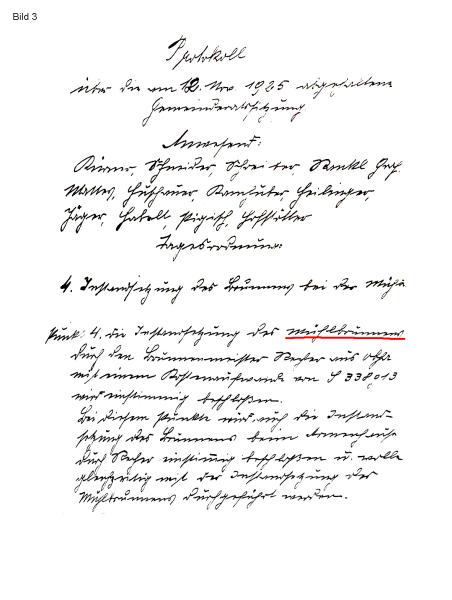 Bild 3
Protokoll
über die am 12. Nov. 1925 abgehaltene
Gemeinderatssitzung
Anwesend:
Schneider, Schreiter
Mattes, Huthauer, Heilinger,
Jäger, Hofstätter
Tagesordnung:
4. Instandsetzung des Brunnens bei der Mühle
Punkt 4. die Instandsetzung des Mühlbrunnens
durch den Brunnenmeister aus
mit einem Kostenaufwande von S
wird einstimmig beschloßen.
Bei diesem Punkte wird auch die Instand-
setzung des Brunnens beim Armenhause
durch einstimmig beschloßen u. wolle
gleichzeitig mit der Instandsetzung des
Mühlbrunnens durchgeführt werden.